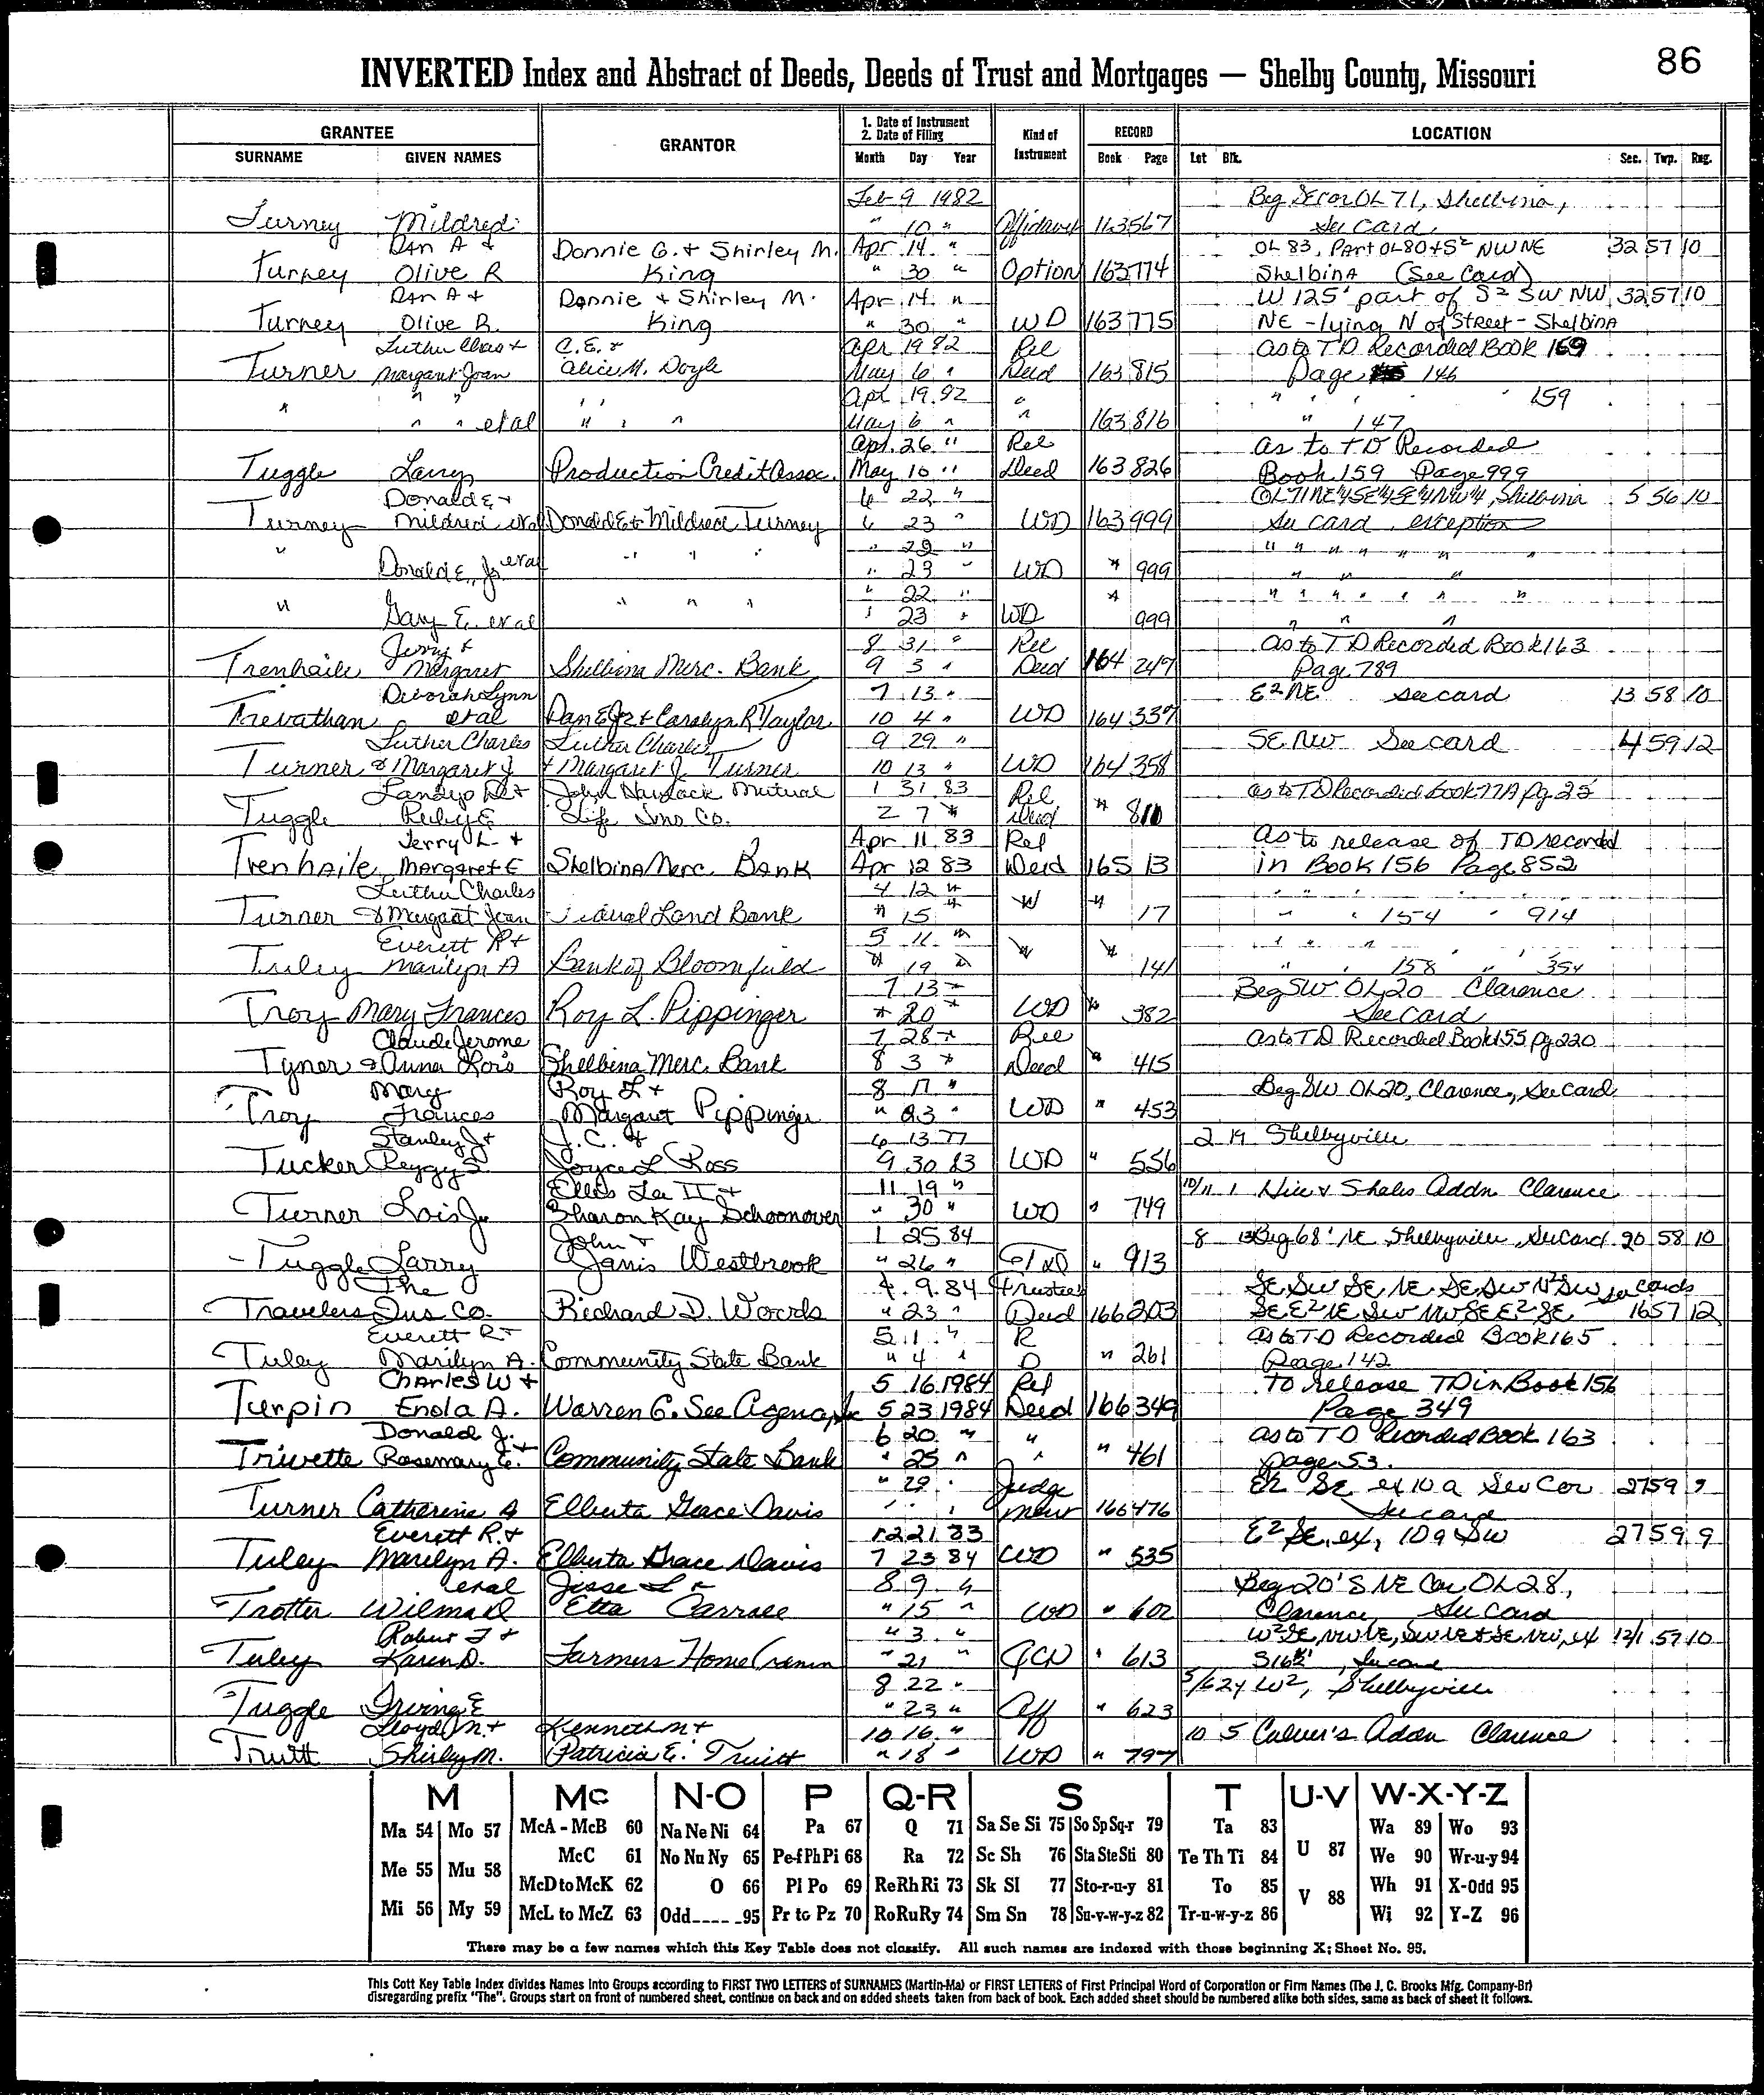 86
INVERTED Index and Abstract of Deeds, Deeds of Trust and Mortgages — Shelby County, Missouri
GRANTEE GRANTOR 1. Date of Instrument 2. Date of Filing Kind of Instrument RECORD LOCATION
SURNAME GIVEN NAMES Month Day Year Book Page Lot Blk. Sec. Twp. Rng.
Feb 9 1982 Beg SE cor OL 71, Shelbina,
Turney Mildred " 10 " Affidavit 163 567 See Card
Dan A + Donnie G. + Shirley M. Apr 14 " OL 83, Part OL 80 + S² NW NE 32 57 10
Turney Olive R King " 30 " Option 163 774 Shelbina (See Card)
Dan A + Donnie + Shirley M. Apr 14 " W 125' part of S² SW NW 32 57 10
Turney Olive R. King " 30 " WD 163 775 NE - lying N of Street - Shelbina
Luther Chas + C.E. + Apr 19 82 Rel as to TD Recorded Book 159
Turner Margaret Joan Alice M. Doyle May 6 " Deed 163 815 Page 146
Apr 19 82 " " " " 159
" " " et al " " " May 6 " " 163 816 " 147
Apr. 26 " Rel as to TD Recorded
Tuggle Larry Production Credit Assoc. May 10 " Deed 163 826 Book 159 Page 999
Donald E + 6 22 " OL 71 NE¼ SE¼ SE¼ NW¼, Shelbina 5 56 10
Turney Mildred et al Donald E + Mildred Turney 6 23 " WD 163 999 See card exception
" 22 " " " " " " " "
" Donald E., Jr et al " " " " 23 " WD " 999 " " "
" 22 " " " " " " " " "
" Gary E. et al " " " " 23 " WD 999 " " "
Jerry + 8 31 " Rel as to TD Recorded Book 163
Trenhaile Margaret Shelbina Merc. Bank 9 3 " Deed 164 247 Page 789
Deborah Lynn 7 13 " E² NE see card 13 58 10
Trevathan et al Dan E Jr + Carolyn R Taylor 10 4 " WD 164 337
Luther Charles Luther Charles 9 29 " SE NW See card 4 59 12
Turner & Margaret J + Margaret J. Turner 10 13 " WD 164 358
John Hancock Mutual 1 31 83 Rel as to TD Recorded Book 77A pg 25
Tuggle Ruby E Life Ins Co. 2 7 " Deed " 810
Jerry L + Apr 11 83 Rel As to release of TD recorded
Trenhaile Margaret E Shelbina Merc. Bank Apr 12 83 Deed 165 13 in Book 156 Page 852
Luther Charles 4 12 " " " " " " "
Turner & Margaret Joan Federal Land Bank " 15 " " " 17 " " 154 " 914
Everett R + 5 11 " " " " " " "
Tuley Marilyn A Bank of Bloomfield " 19 " " " 141 " " 158 " 354
7 13 " Beg SW OL 20 Clarence
Troy Mary Frances Roy L. Pippinger " 20 " WD " 382 See Card
Claude Jerome 7 28 " Rel as to TD Recorded Book 155 pg 220
Tyner & Anna Lois Shelbina Merc. Bank 8 3 " Deed " 415
Mary Roy L + 8 17 " Beg SW OL 20, Clarence, See Card
Troy Frances Margaret Pippinger " 23 " WD " 453
Stanley J + J.C. + 6 13 77 2 19 Shelbyville
Tucker Peggy S. Joyce L Ross 9 30 83 WD " 556
Ellis Lee II + 11 19 " 10/11 1 Hill & Shales Addn Clarence
Turner Lois J Sharon Kay Schoonover " 30 " WD " 749
John + 1 25 84 8 13 Beg 68' NE, Shelbyville, See Card 20 58 10
Tuggle Larry Janis Westbrook " 26 " " 913
The 4 9 84 Trustees SE SW SE, NE SE, SW N² SW See cards
Travelers Ins Co. Richard D. Woods " 23 " Deed 166 203 SE E² NE SW NW SE E² SE 16 57 12
Everett R + 5 1 " R as to TD Recorded Book 165
Tuley Marilyn A. Community State Bank " 4 " D " 261 Page 142
Charles W + 5 16 1984 Rel To release TD in Book 156
Turpin Enola A. Warren G. See Agency, Inc 5 23 1984 Deed 166 349 Page 349
Donald J. 6 20 " " as to TD Recorded Book 163
Trivette Rosemary E. + Community State Bank " 25 " " " 461 page 53.
" 29 " Judge E² SE ex 10 a SW Cor 27 59 9
Turner Catherine A Elberta Grace Davis " " " ment 166 476 See card
Everett R. + 12 21 83 E² SE, ex, 10 a SW 27 59 9
Tuley Marilyn A. Elberta Grace Davis 7 23 84 WD " 535
et al Jesse L + 8 9 " Beg 20' S NE Cor OL 28,
Trotter Wilma D Etta Carroll " 15 " WD " 602 Clarence, See Card
Robert J + " 3 " W² SE, NW NE, SW NE & SE NW, ex 12/1 59 10
Tuley Karen D. Farmers Home " 21 " QCD " 613 S 16½', See card
8 22 " W², Shelbyville
Tuggle Irving E " 23 " Aff " 623
Lloyd M. + Kenneth M + 10 16 " 10 5 Culver's Addn Clarence
Truitt Shirley M. Patricia E. Truitt " 18 " WD " 797
M Mc N-O P Q-R S T U-V W-X-Y-Z
Ma 54 Mo 57 McA - McB 60 Na Ne Ni 64 Pa 67 Q 71 Sa Se Si 75 So Sp Sq-r 79 Ta 83 Wa 89 Wo 93
Me 55 Mu 58 McC 61 No Nu Ny 65 Pe-f Ph Pi 68 Ra 72 Sc Sh 76 Sta Ste Sti 80 Te Th Ti 84 U 87 We 90 Wr-u-y 94
McD to McK 62 O 66 Pl Po 69 Re Rh Ri 73 Sk Sl 77 Sto-r-u-y 81 To 85 V 88 Wh 91 X-Odd 95
Mi 56 My 59 McL to McZ 63 Odd---- -95 Pr to Pz 70 Ro Ru Ry 74 Sm Sn 78 Su-v-w-y-z 82 Tr-u-w-y-z 86 Wi 92 Y-Z 96
There may be a few names which this Key Table does not classify. All such names are indexed with those beginning X; Sheet No. 95.
This Cott Key Table Index divides Names into Groups according to FIRST TWO LETTERS of SURNAMES (Martin-Ma) or FIRST LETTERS of First Principal Word of Corporation or Firm Names (The J. C. Brooks Mfg. Company-Br)
disregarding prefix "The". Groups start on front of numbered sheet, continue on back and on added sheets taken from back of book. Each added sheet should be numbered alike both sides, same as back of sheet it follows.